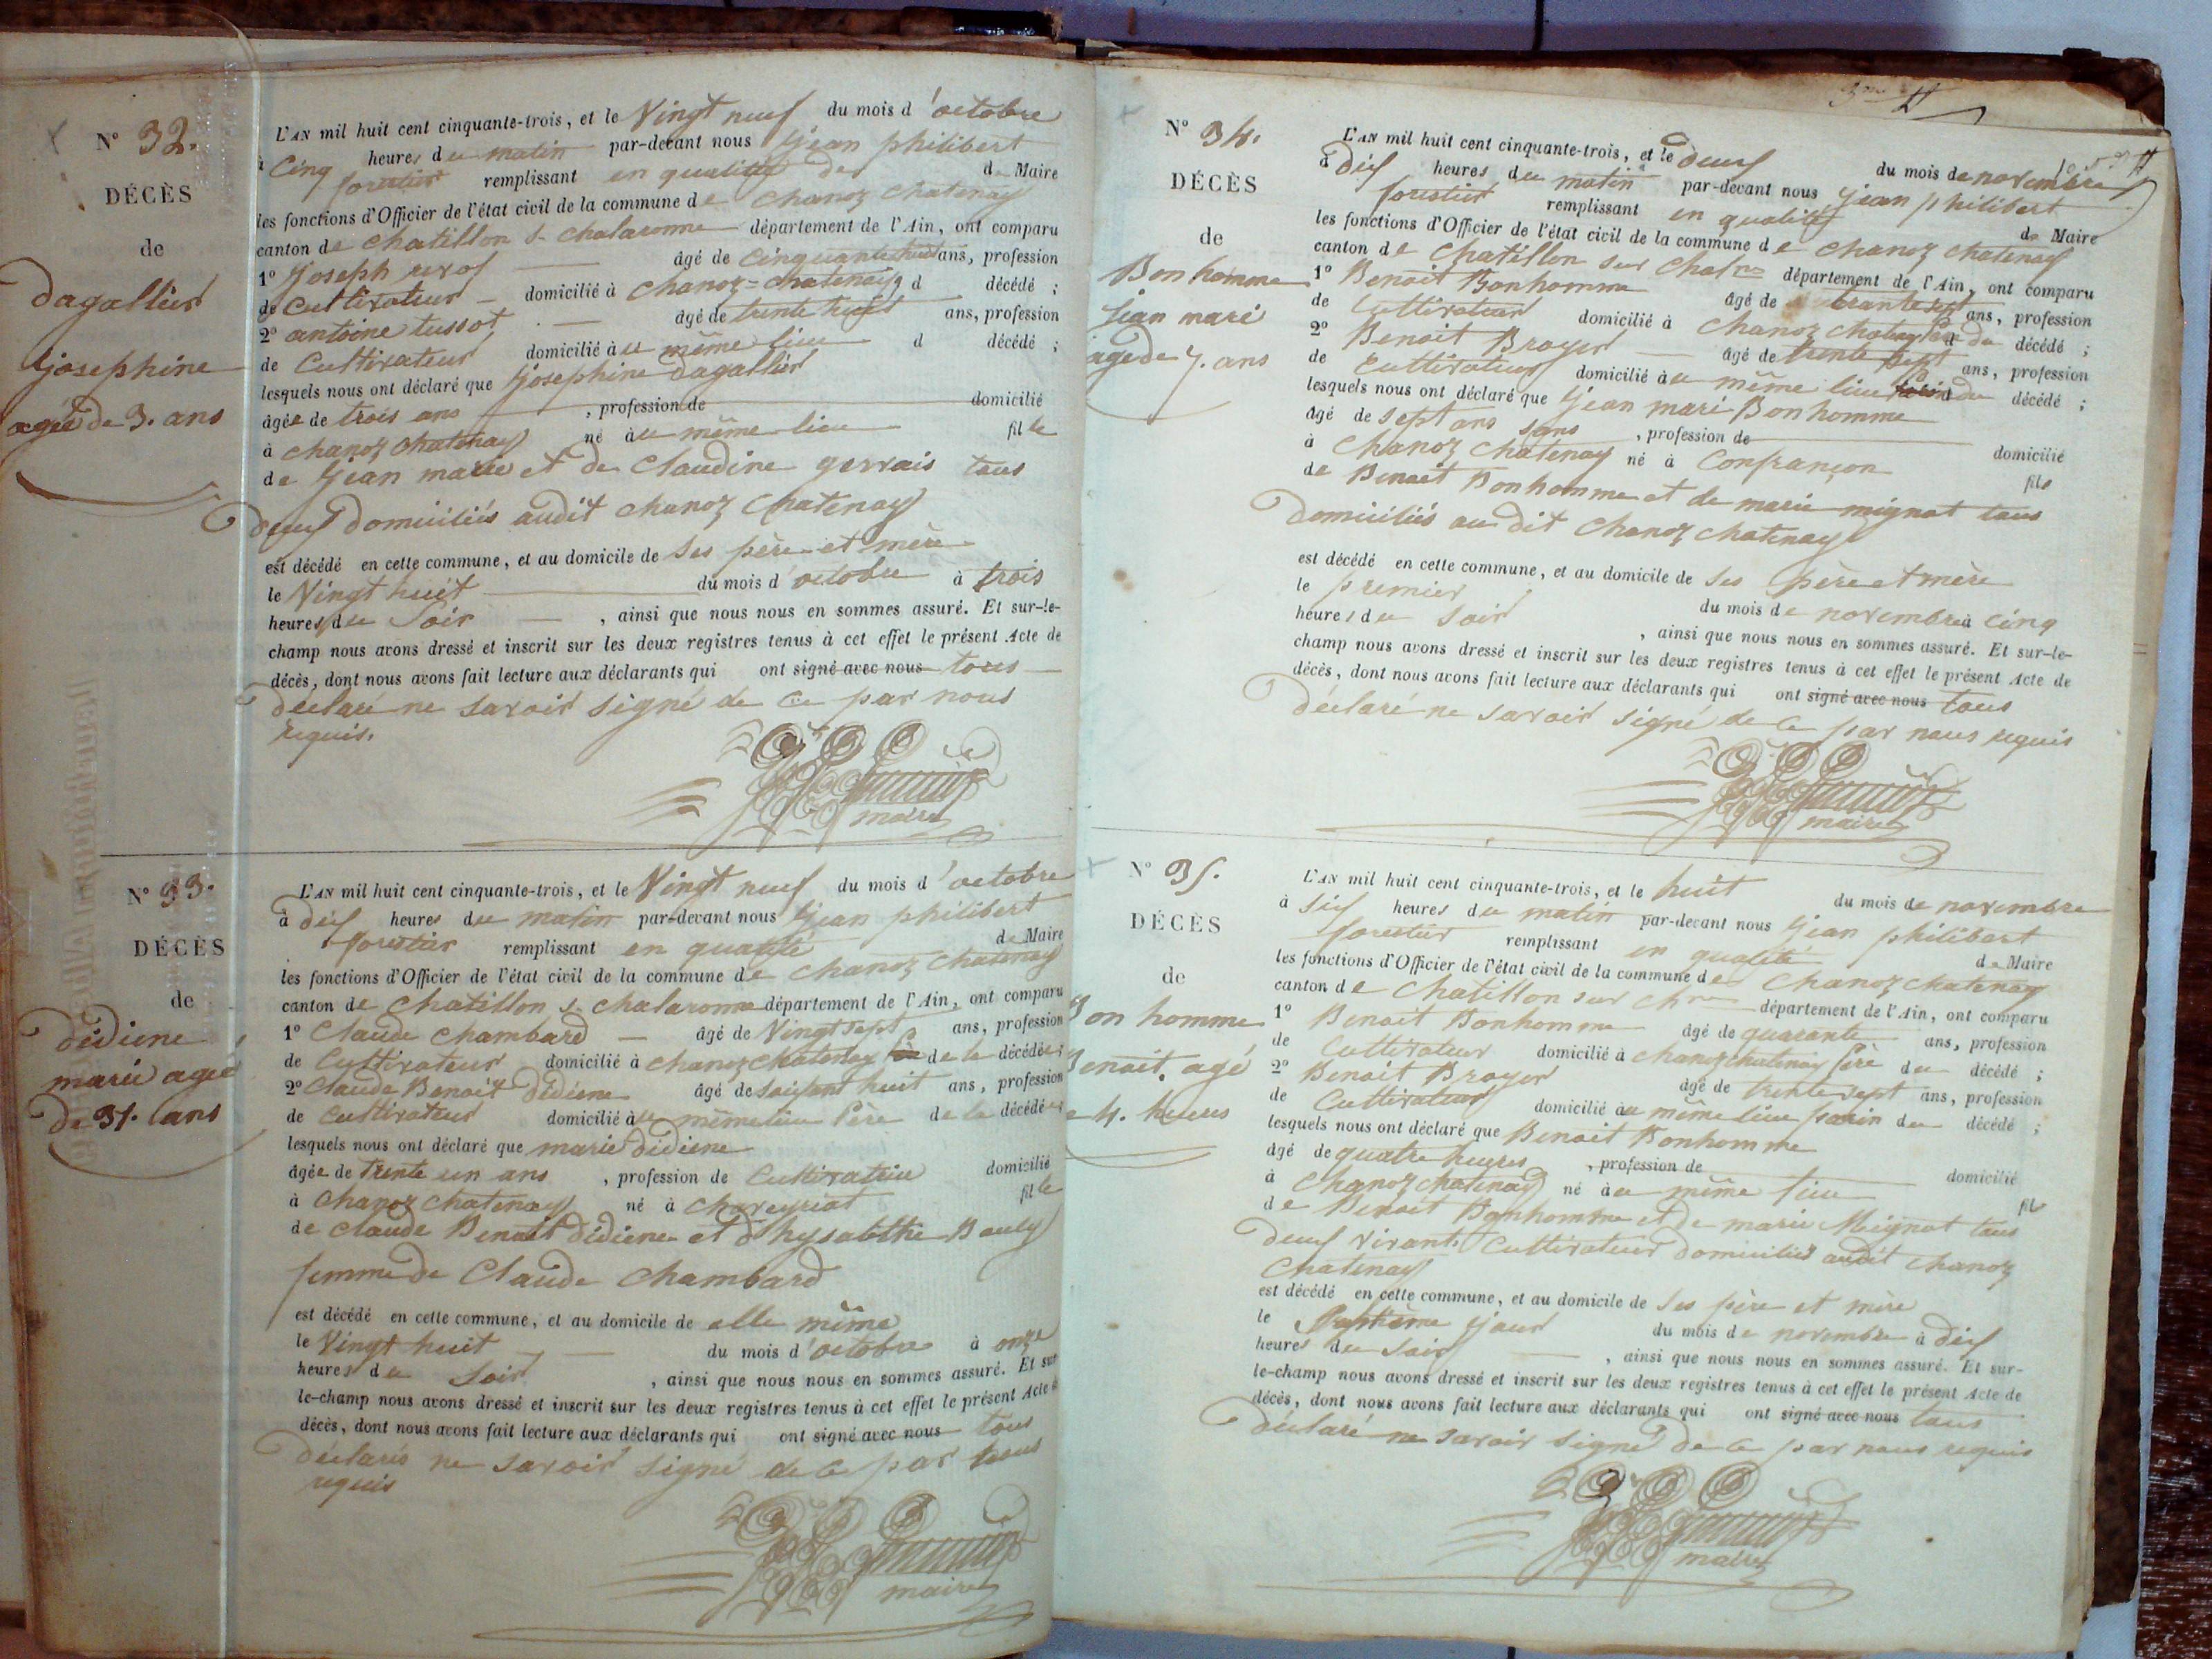 N° 32.
DÉCÈS
de
Dagallier
Josephine
agée de 3. ans
L'AN mil huit cent cinquante-trois, et le Vingt neuf du mois d'octobre
à Cinq heures du matin par-devant nous Jean philibert
forestier remplissant en qualité de de Maire
les fonctions d'Officier de l'état civil de la commune de Chanoz Chatenay
canton de Chatillon s. Chalaronne département de l'Ain, ont comparu
1° Joseph âgé de Cinquante huit ans, profession
de Cultivateur domicilié à Chanoz=Chatenay d décédé ;
2° antoine tussot âgé de trente huit ans, profession
de Cultivateur domicilié à u même lieu d décédé ;
lesquels nous ont déclaré que Josephine Dagallier
âgée de trois ans , profession de domicilié
à Chanoz Chatenay né à u même lieu fille
de Jean marie et de Claudine gervais tous
deux domiciliés audit Chanoz Chatenay
est décédé en cette commune, et au domicile de ses père et mère
le Vingt huit du mois d'octobre à trois
heures du Soir , ainsi que nous nous en sommes assuré. Et sur-le-
champ nous avons dressé et inscrit sur les deux registres tenus à cet effet le présent Acte de
décès, dont nous avons fait lecture aux déclarants qui ont signé avec nous tous
déclaré ne savoir signé de ce par nous
requis.
maire
N° 33.
DÉCÈS
de
didiene
marie agée
de 31. ans
L'AN mil huit cent cinquante-trois, et le Vingt neuf du mois d'octobre
à dix heures du matin par-devant nous Jean philibert
forestier remplissant en qualité de Maire
les fonctions d'Officier de l'état civil de la commune de Chanoz Chatenay
canton de Chatillon s. Chalaronne département de l'Ain, ont comparu
1° Claude Chambard âgé de Vingt sept ans, profession
de Cultivateur domicilié à Chanoz Chatenay de la décédée ;
2° Claude Benoit Didiene âgé de soixant huit ans, profession
de Cultivateur domicilié à u même lieu Père de la décédée ;
lesquels nous ont déclaré que marie Didiene
âgée de trente un ans , profession de Cultivatrice domicilié
à Chanoz Chatenay né à Chaveyriat fille
de Claude Benoit Didiene et d'hysabethe Bauly
femme de Claude Chambard
est décédé en cette commune, et au domicile de elle même
le Vingt huit du mois d'octobre à onze
heures du Soir , ainsi que nous nous en sommes assuré. Et sur
le-champ nous avons dressé et inscrit sur les deux registres tenus à cet effet le présent Acte de
décès, dont nous avons fait lecture aux déclarants qui ont signé avec nous tous
déclarés ne savoir signé de ce par nous
requis
maire
N° 34.
DÉCÈS
de
Bonhomme
Jean marie
agé de 7. ans
L'AN mil huit cent cinquante-trois, et le deux du mois de novembre
à dix heures du matin par-devant nous Jean philibert
forestier remplissant en qualité de Maire
les fonctions d'Officier de l'état civil de la commune de Chanoz Chatenay
canton de Chatillon sur Chalne département de l'Ain, ont comparu
1° Benoit Bonhomme âgé de ans, profession
de Cultivateur domicilié à Chanoz Chatenay Père du décédé ;
2° Benoit Broyer âgé de trente sept ans, profession
de Cultivateur domicilié à u même lieu du décédé ;
lesquels nous ont déclaré que Jean marie Bonhomme
âgé de sept ans sans , profession de domicilié
à Chanoz Chatenay né à Confrançon fils
de Benoit Bonhomme et de marie mignat tous
domiciliés au dit Chanoz Chatenay
est décédé en cette commune, et au domicile de ses père et mère
le premier du mois de novembre à cinq
heures du soir , ainsi que nous nous en sommes assuré. Et sur-le-
champ nous avons dressé et inscrit sur les deux registres tenus à cet effet le présent Acte de
décès, dont nous avons fait lecture aux déclarants qui ont signé avec nous tous
déclaré ne savoir signé de ce par nous requis
maire
N° 35.
DÉCÈS
de
Bonhomme
Benoit. agé
de 4. heures
L'AN mil huit cent cinquante-trois, et le huit du mois de novembre
à six heures du matin par-devant nous Jean philibert
forestier remplissant en qualité de Maire
les fonctions d'Officier de l'état civil de la commune de Chanoz Chatenay
canton de Chatillon sur Chne département de l'Ain, ont comparu
1° Benoit Bonhomme âgé de quarante ans, profession
de Cultivateur domicilié à Chanoz Chatenay Père du décédé ;
2° Benoit Broyer âgé de trente sept ans, profession
de Cultivateur domicilié à u même lieu parin du décédé ;
lesquels nous ont déclaré que Benoit Bonhomme
âgé de quatre heures , profession de domicilié
à Chanoz Chatenay né à u même lieu fils
de Benoit Bonhomme et de marie Meignat tous
deux vivant. Cultivateur domiciliés audit Chanoz
Chatenay
est décédé en cette commune, et au domicile de ses père et mère
le Septième jour du mois de novembre à dix
heures du Soir , ainsi que nous nous en sommes assuré. Et sur-
le-champ nous avons dressé et inscrit sur les deux registres tenus à cet effet le présent Acte de
décès, dont nous avons fait lecture aux déclarants qui ont signé avec nous tous
déclaré ne savoir signé de ce par nous requis
maire